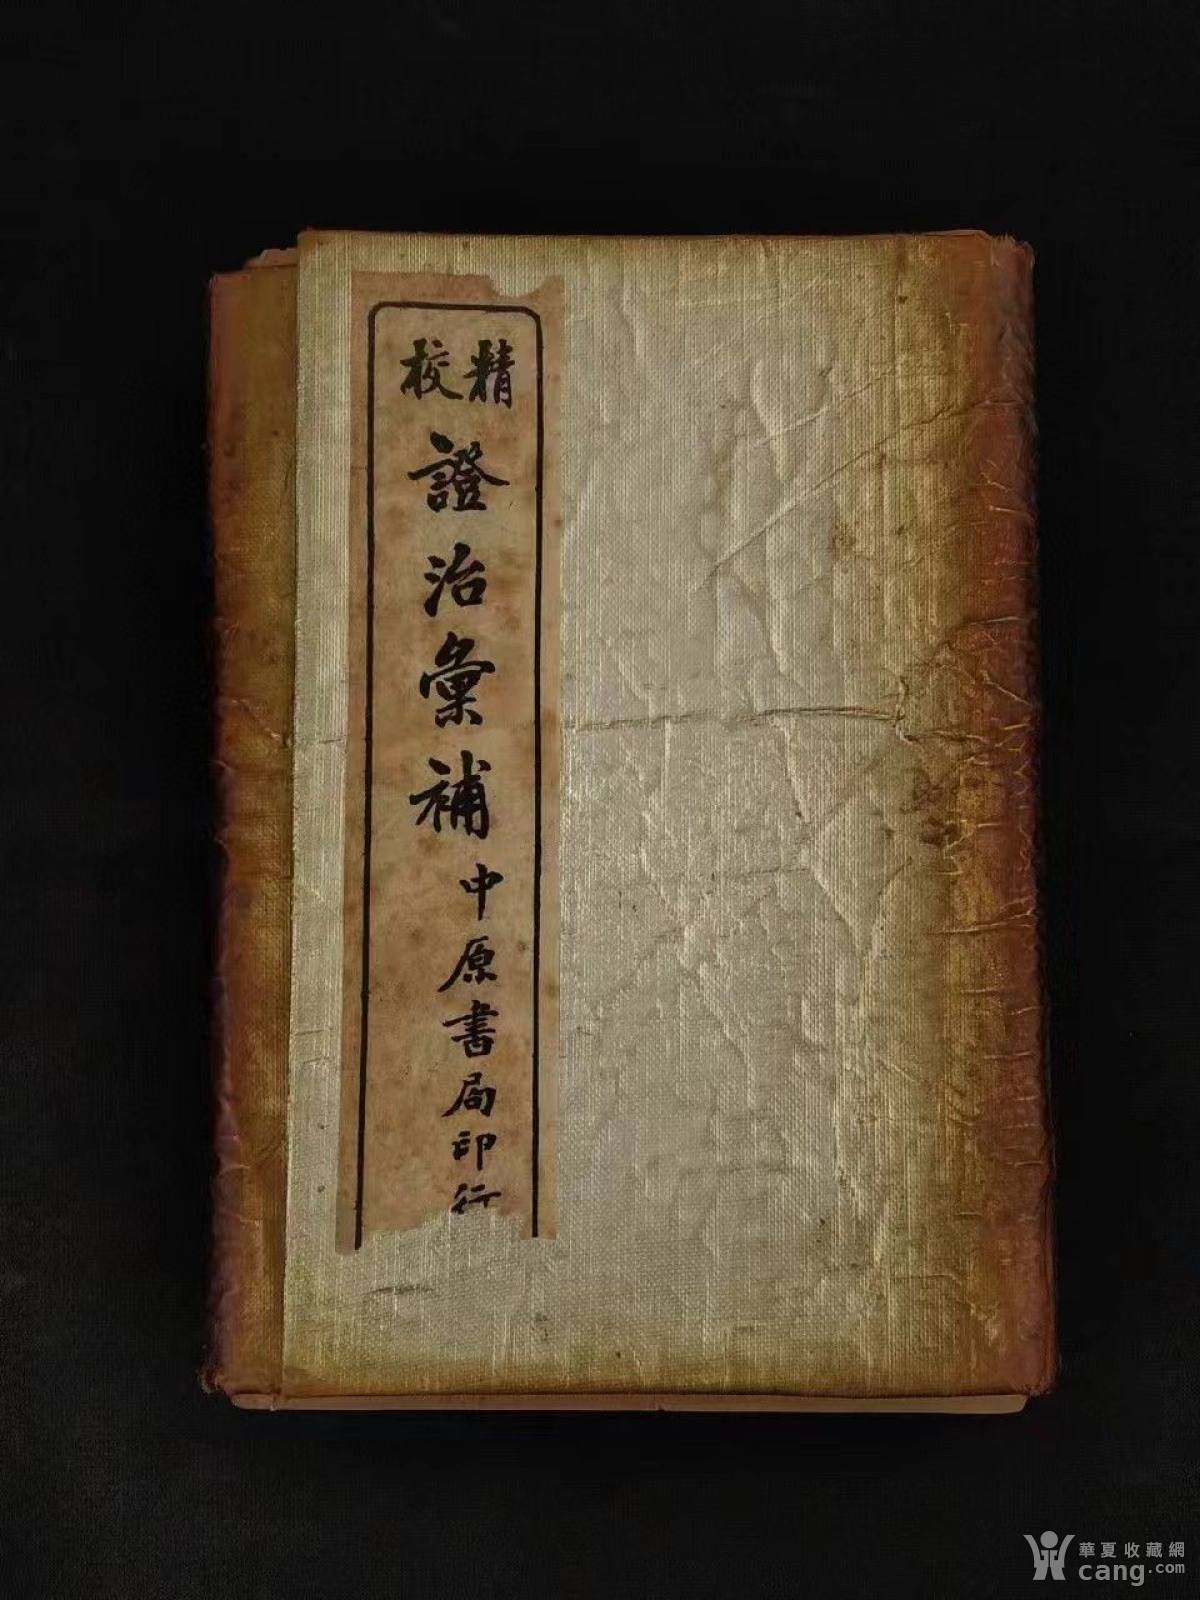 精校
證治彙補
中原書局印行
華夏收藏網
cang.com